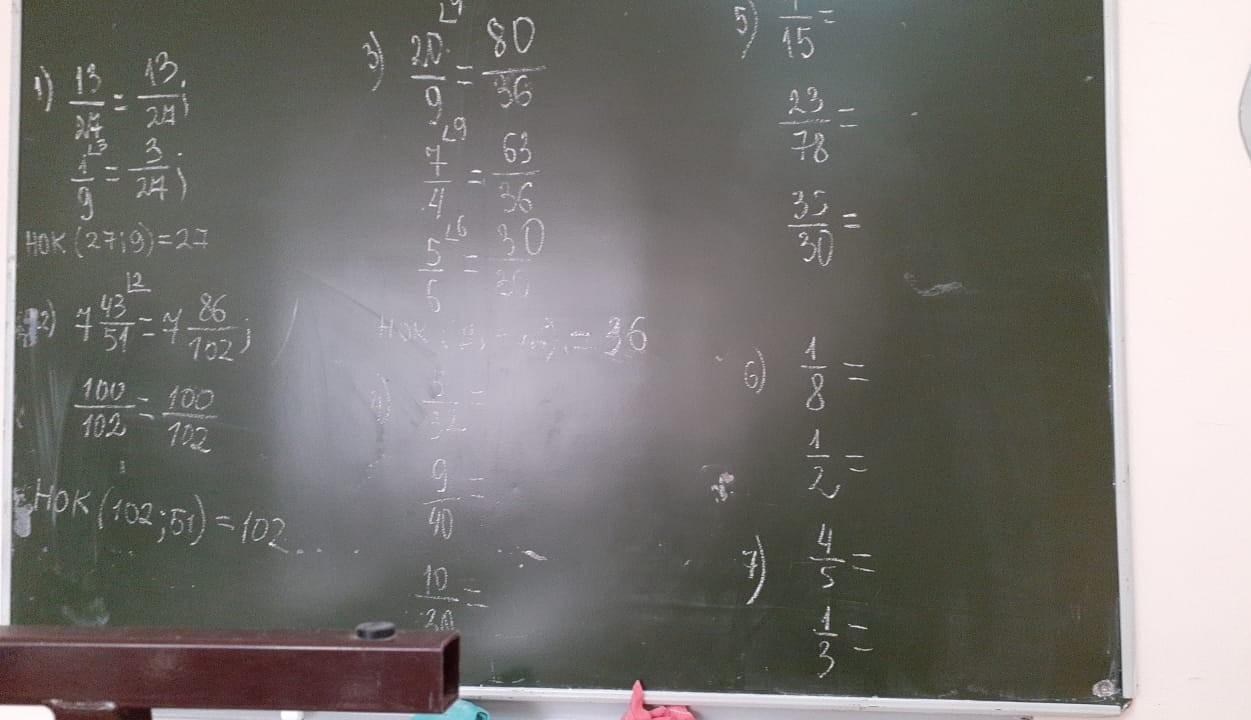 1) 13/27 = 13/27;
1/9 ⌊3 = 3/27;
НОК (27;9)=27
2) 7 43/51 ⌊2 = 7 86/102;
100/102 = 100/102
НОК (102;51)=102
3) 20/9 = 80/36
7/4 ⌊9 = 63/36
5/5 ⌊6 = 30/
НОК = 36
9/40 =
10/30 =
5) 1/15 =
23/78 =
35/30 =
6) 1/8 =
1/2 =
7) 4/5 =
1/3 =